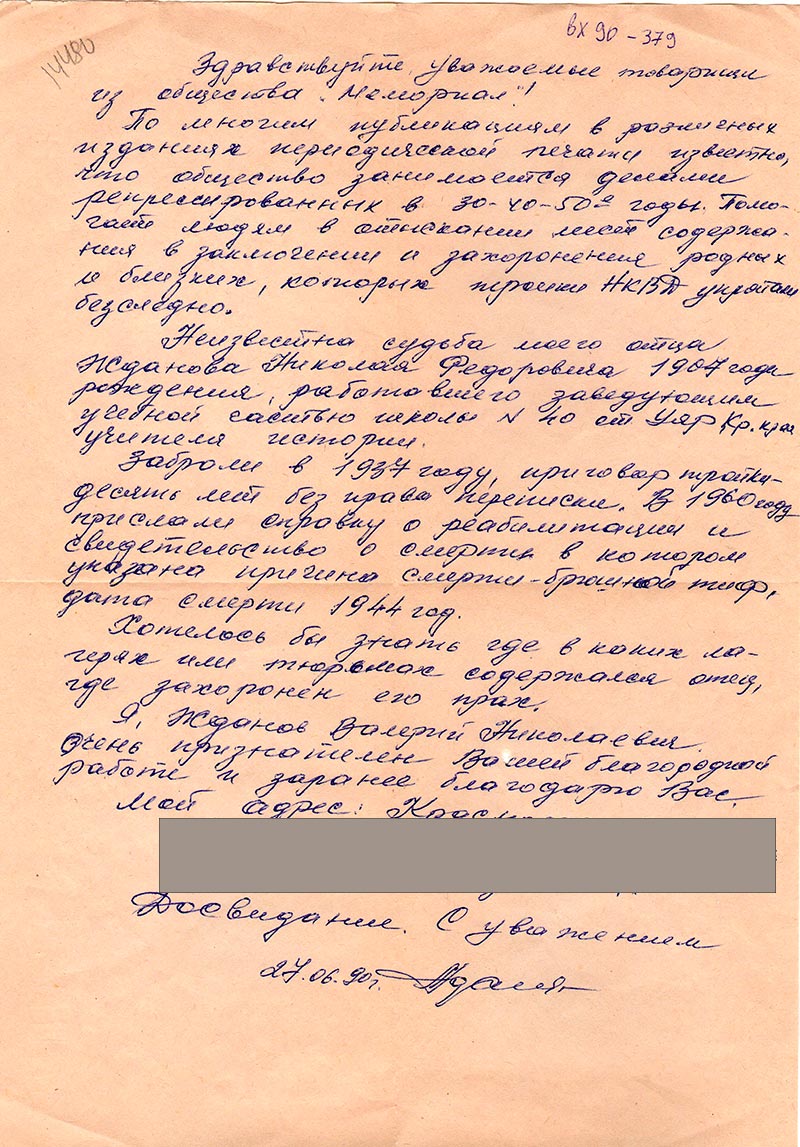 14480
вх 90 - 379
Здравствуйте, уважаемые товарищи
из общества "Мемориал"!
По многим публикациям в различных
изданиях периодической печати известно,
что общество занимается делами
репрессированных в 30-40-50е годы. Помо-
гает людям в отыскании мест содержа-
ния в заключении и захоронения родных
и близких, которых тройки НКВД упрятали
безследно.
Неизвестна судьба моего отца
Жданова Николая Федоровича 1907 года
рождения, работавшего заведующим
учебной частью школы N 40 ст Уяр Кр. края
учителя истории.
Забрали в 1937 году, приговор тройки-
десять лет без права переписки. В 1960 году
прислали справку о реабилитации и
свидетельство о смерти в котором
указана причина смерти-брюшной тиф,
дата смерти 1944 год.
Хотелось бы знать где в каких ла-
герях или тюрьмах содержался отец,
где захоронен его прах.
Я, Жданов Валерий Николаевич
очень признателен Вашей благородной
работе и заранее благодарю Вас.
Мой адрес:
Досвидание. С уважением
27.06.90г.